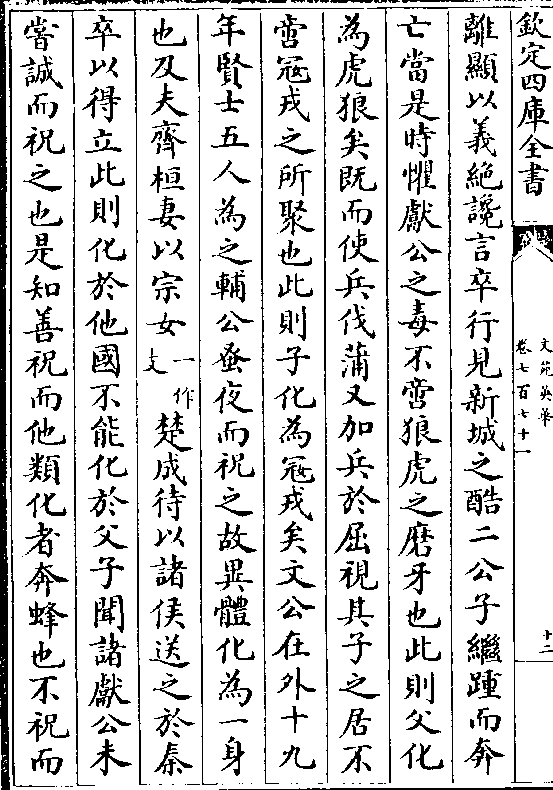 欽定四庫全書
文苑英華
卷七百七十一
十二
離顯以義絶讒言卒行見新城之酷二公子繼踵而奔
亡當是時懼獻公之毒不啻狼虎之磨牙也此則父化
為虎狼矣既而使兵伐蒲又加兵於屈視其子之居不
啻冦戎之所聚也此則子化為冦戎矣文公在外十九
年賢士五人為之輔公蚤夜而祝之故異體化為一身
也及夫齊桓妻以宗女一作文楚成待以諸侯送之於秦
卒以得立此則化於他國不能化於父子聞諸獻公未
嘗誠而祝之也是知善祝而他類化者奔蜂也不祝而